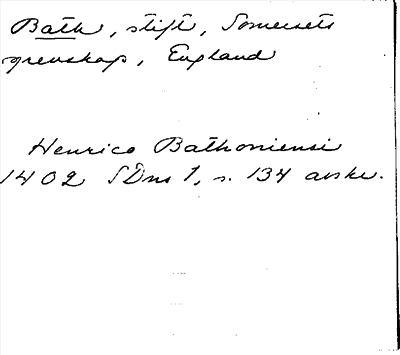 Bath, stift, Somersets
grevskap, England
Henrico Bathoniensi
1402 SDns 1, s. 134 avskr.